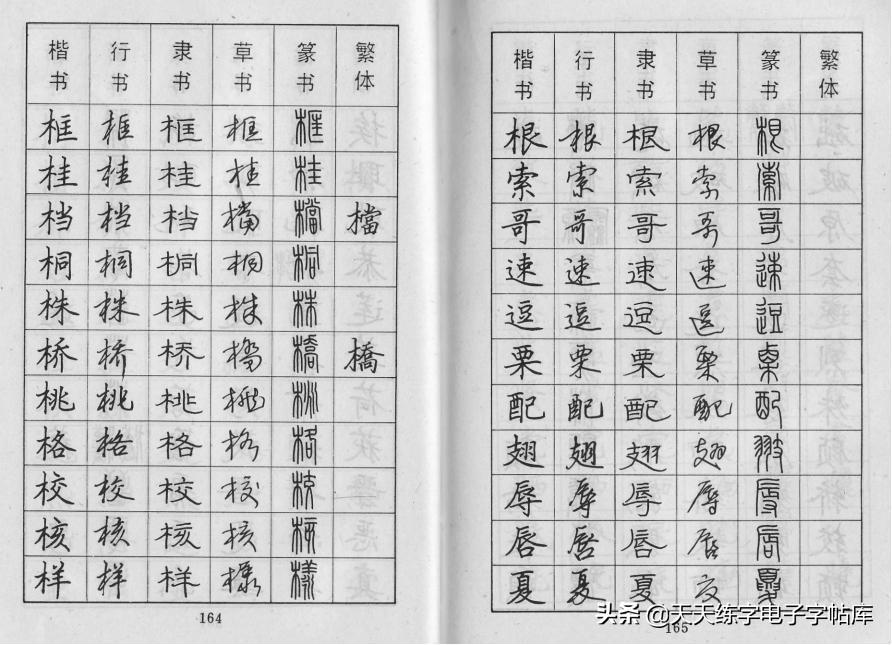 楷书 行书 隶书 草书 篆书 繁体
框 框 框 框 框
桂 桂 桂 桂 桂
档 档 档 檔 檔 檔
桐 桐 桐 桐 桐
株 株 株 株 株
桥 桥 桥 橋 橋 橋
桃 桃 桃 桃 桃
格 格 格 格 格
校 校 校 校 校
核 核 核 核 核
样 样 样 様 樣
164
楷书 行书 隶书 草书 篆书 繁体
根 根 根 根 根
索 索 索 索 索
哥 哥 哥 哥 哥
速 速 速 速 速
逗 逗 逗 逗 逗
栗 栗 栗 栗 栗
配 配 配 配 配
翅 翅 翅 翅 翅
辱 辱 辱 辱 辱
唇 唇 唇 唇 唇
夏 夏 夏 夏 夏
165
头条 @天天练字电子字帖库